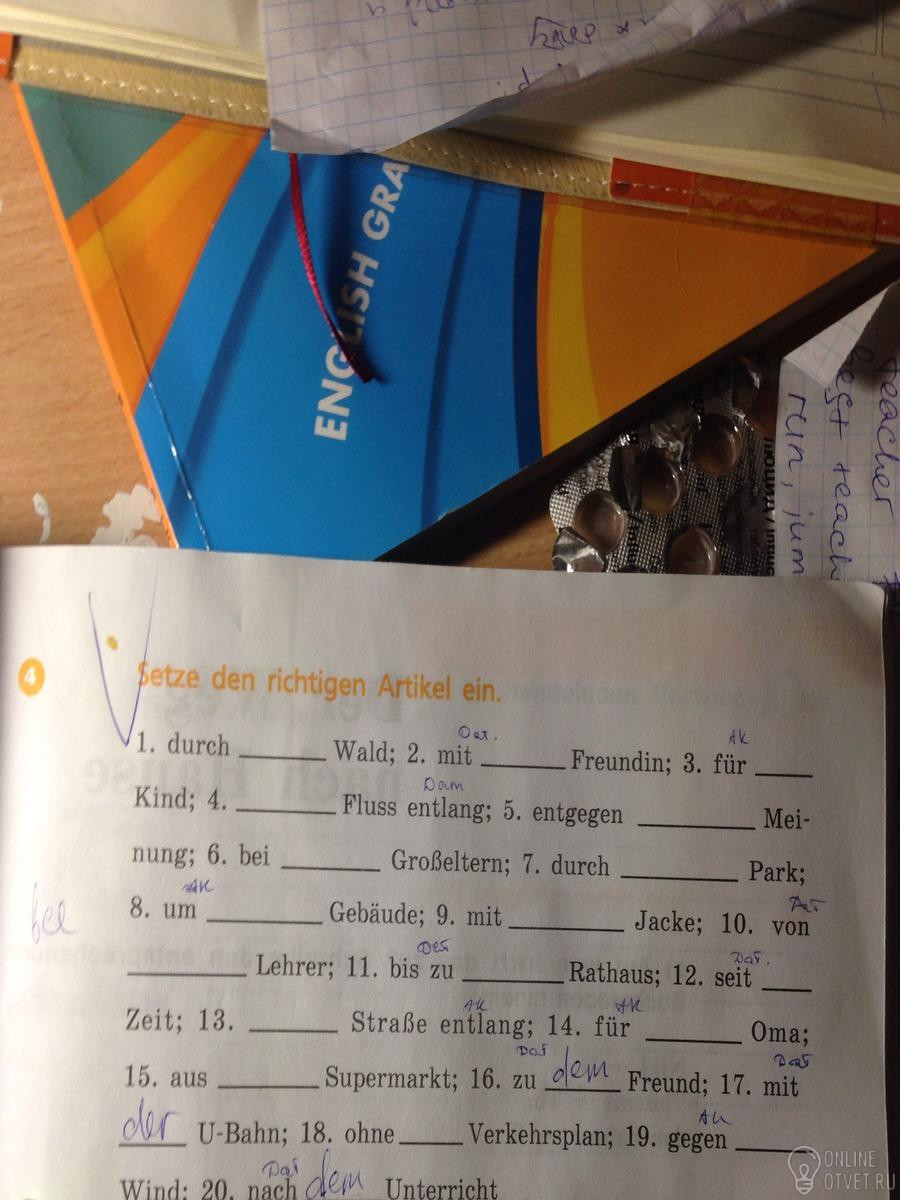 ENGLISH GRA
teacher
best teach
run, jum
4
Setze den richtigen Artikel ein.
Dat. Ak
1. durch ______ Wald; 2. mit ______ Freundin; 3. für ____
Kind; 4. ______ Fluss entlang; 5. entgegen ______ Mei-
nung; 6. bei ______ Großeltern; 7. durch ______ Park;
AK
8. um ______ Gebäude; 9. mit ______ Jacke; 10. von
Dat
______ Lehrer; 11. bis zu ______ Rathaus; 12. seit ____
Dat.
Zeit; 13. ______ Straße entlang; 14. für ______ Oma;
AK AK
15. aus ______ Supermarkt; 16. zu dem Freund; 17. mit
Dat Dat
der U-Bahn; 18. ohne ____ Verkehrsplan; 19. gegen ____
Wind; 20. nach dem Unterricht
Dat
ONLINE
OTVET.RU